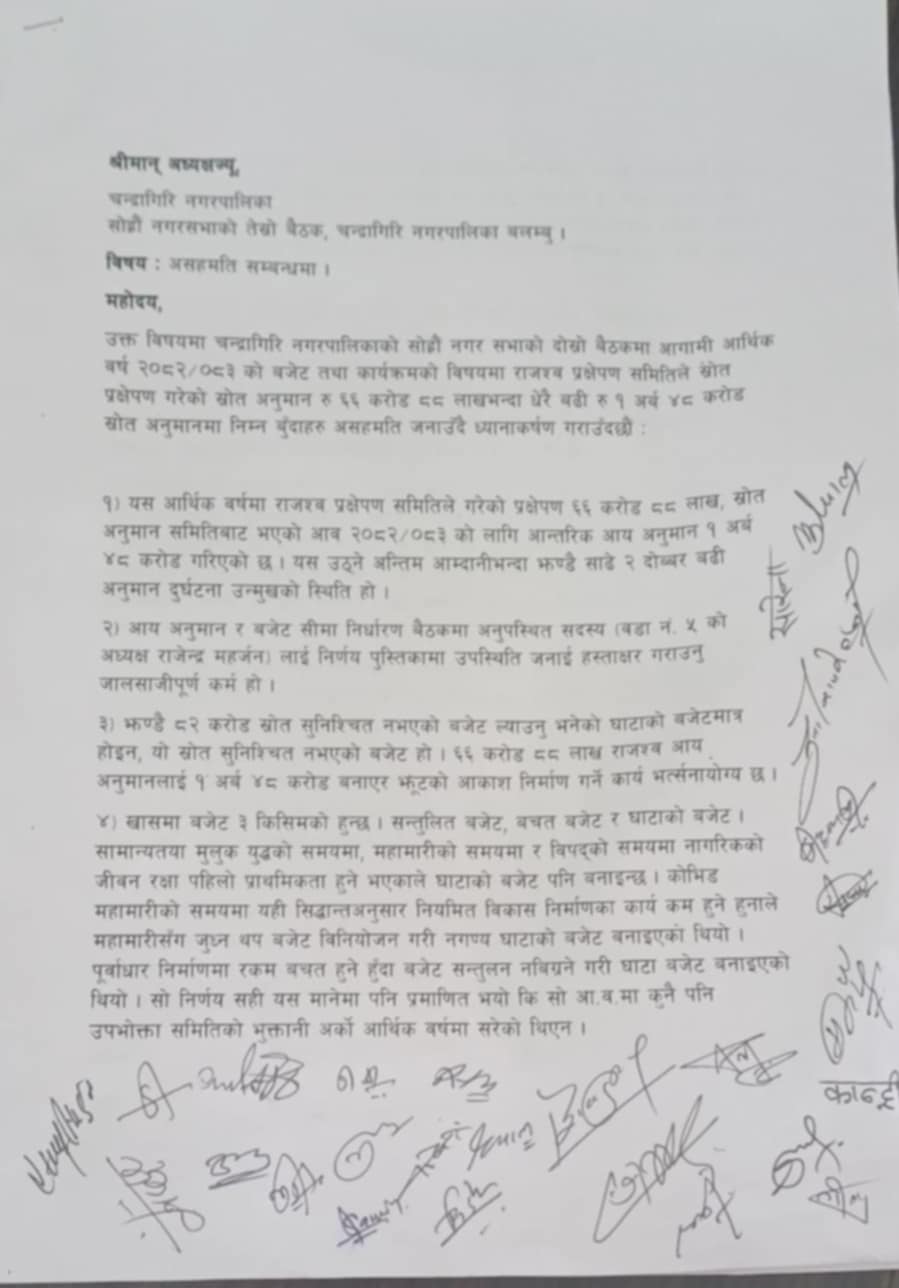 श्रीमान् अध्यक्षज्यू,
चन्द्रागिरि नगरपालिका
सोह्रौ नगरसभाको तेस्रो बैठक, चन्द्रागिरि नगरपालिका बलम्बु ।
विषय : असहमति सम्बन्धमा ।
महोदय,
उक्त विषयमा चन्द्रागिरि नगरपालिकाको सोह्रौ नगर सभाको दोस्रो बैठकमा आगामी आर्थिक
वर्ष २०८२/०८३ को बजेट तथा कार्यक्रमको विषयमा राजश्व प्रक्षेपण समितिले स्रोत
प्रक्षेपण गरेको स्रोत अनुमान रु ६६ करोड ८८ लाखभन्दा धेरै बढी रु १ अर्ब ४८ करोड
स्रोत अनुमानमा निम्न बुँदाहरु असहमति जनाउँदै ध्यानाकर्षण गराउँदछौ :
१) यस आर्थिक वर्षमा राजश्व प्रक्षेपण समितिले गरेको प्रक्षेपण ६६ करोड ८८ लाख, स्रोत
अनुमान समितिबाट भएको आव २०८२/०८३ को लागि आन्तरिक आय अनुमान १ अर्ब
४८ करोड गरिएको छ । यस उठ्ने अन्तिम आम्दानीभन्दा झण्डै साढे २ दोब्बर बढी
अनुमान दुर्घटना उन्मुखको स्थिति हो ।
२) आय अनुमान र बजेट सीमा निर्धारण बैठकमा अनुपस्थित सदस्य (वडा नं. ५ को
अध्यक्ष राजेन्द्र महर्जन) लाई निर्णय पुस्तिकामा उपस्थिति जनाई हस्ताक्षर गराउनु
जालसाजीपूर्ण कर्म हो ।
३) झण्डै ८२ करोड स्रोत सुनिश्चित नभएको बजेट ल्याउनु भनेको घाटाको बजेटमात्र
होइन, यो स्रोत सुनिश्चित नभएको बजेट हो । ६६ करोड ८८ लाख राजश्व आय
अनुमानलाई १ अर्ब ४८ करोड बनाएर झूटको आकाश निर्माण गर्ने कार्य भर्त्सनायोग्य छ ।
४) खासमा बजेट ३ किसिमको हुन्छ । सन्तुलित बजेट, बचत बजेट र घाटाको बजेट ।
सामान्यतया मुलुक युद्धको समयमा, महामारीको समयमा र विपद्को समयमा नागरिकको
जीवन रक्षा पहिलो प्राथमिकता हुने भएकाले घाटाको बजेट पनि बनाइन्छ । कोभिड
महामारीको समयमा यही सिद्धान्तअनुसार नियमित विकास निर्माणका कार्य कम हुने हुनाले
महामारीसँग जुध्न थप बजेट विनियोजन गरी नगण्य घाटाको बजेट बनाइएको थियो ।
पूर्वाधार निर्माणमा रकम बचत हुने हुँदा बजेट सन्तुलन नबिग्रने गरी घाटा बजेट बनाइएको
थियो । सो निर्णय सही यस मानेमा पनि प्रमाणित भयो कि सो आ.ब.मा कुनै पनि
उपभोक्ता समितिको भुक्तानी अर्को आर्थिक वर्षमा सरेको थिएन ।